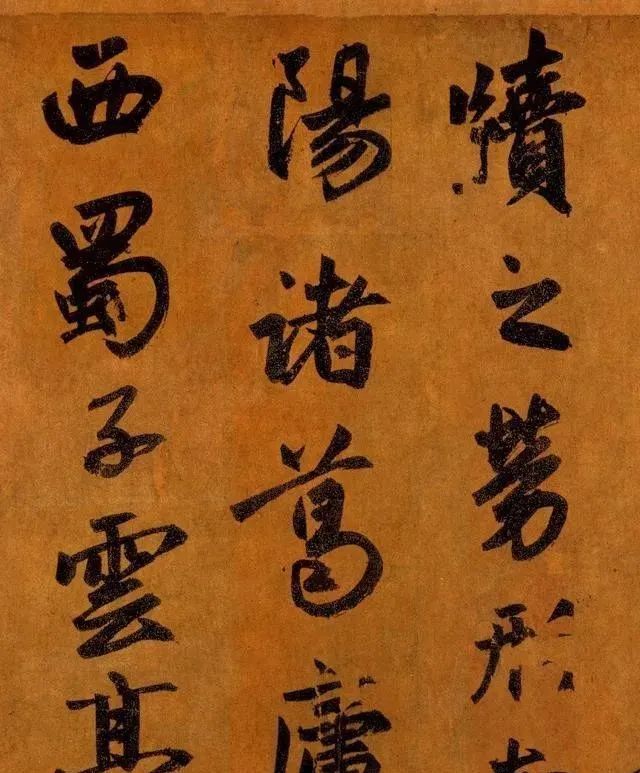 牘之勞形
陽諸葛廬
西蜀子雲亭